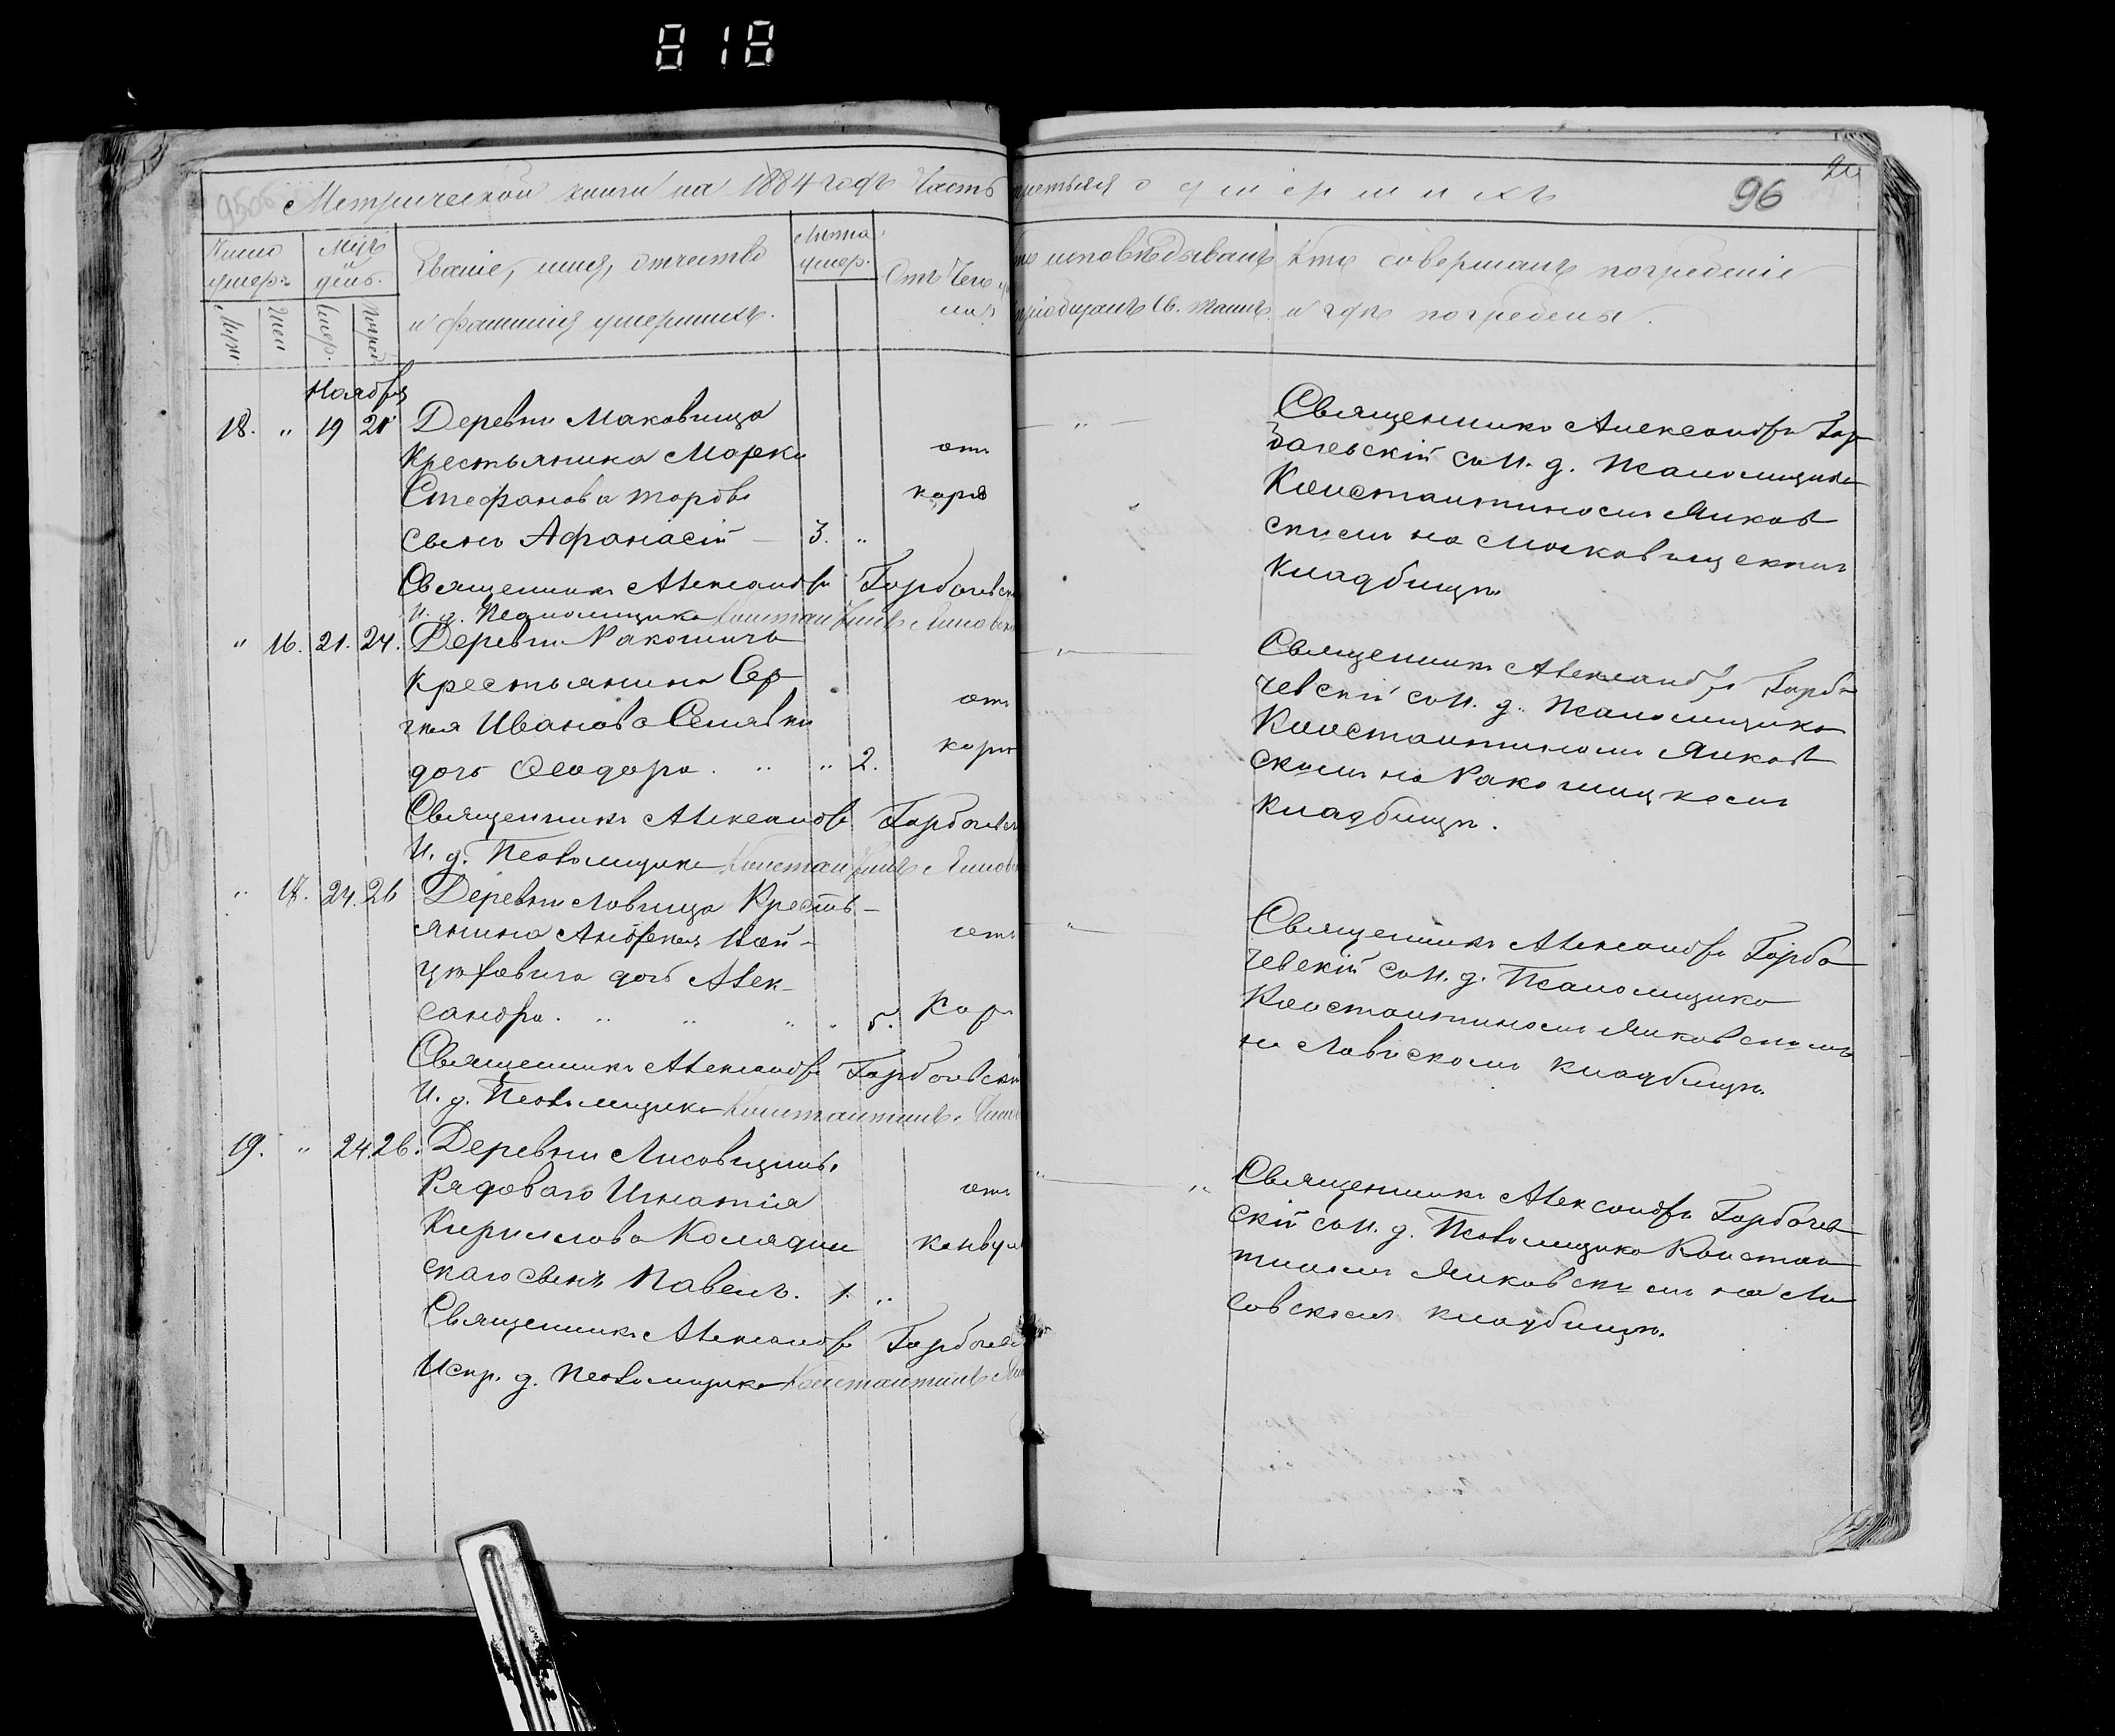 818
Метрической книги на 1884 годъ Часть третьяя о умершихъ
96
Число умер.
Мцъ и день.
Званіе, имя, отчество
и фамилія умершихъ.
Лѣта умер.
Отъ чего
исповѣдывалъ
пріобщалъ Св. таинъ
Кто совершалъ погребеніе
и гдѣ погребены.
Муж.
Жен
Умер.
Погреб
Ноября
18. " 19 21 Деревни Маковища
Крестьянина Марки
Стефанова
сынъ Афанасій — 3. "
отъ
коря
Священникъ Александръ Горбачевск
И. д. Псаломщика Константинъ
Священникъ Александръ Гор
бачевскій съ И. д. Псаломщика
Константиномъ Янков
скимъ на Маковищскомъ
кладбищѣ.
" 16. 21. 24. Деревни Ракошичъ
Крестьянина Сер
гѣя Иванова
дочь Ѳеодора . " " 2.
отъ
кори
Священникъ Александръ Горбачевск
И. д. Псаломщика Константинъ
Священникъ Александръ Горба
чевскій съ И. д. Псаломщика
Константиномъ Янков
скимъ на Ракошицкомъ
кладбищѣ.
" 18. 24. 26 Деревни Ловчица Кресть-
янина Андрея
дочь Алек-
сандра. " " " " 5.
отъ
Кор
Священникъ Александръ Горбачевскі
И. д. Псаломщика Константинъ
Священникъ Александръ Горба
чевскій съ И. д. Псаломщика
Константиномъ Янковскимъ
на Ловчскомъ кладбищѣ.
19. " 24. 26. Деревни Лисовщины
Рядоваго Игнатія
Кириллова Колядин
скаго сынъ Павелъ. 1. "
отъ
конвул
Священникъ Александръ Горбачев
Испр. д. Псаломщика Константинъ
Священникъ Александръ Горбачев
скій съ И. д. Псаломщика Констан
тиномъ Янковскимъ на Ли
совскомъ кладбищѣ.